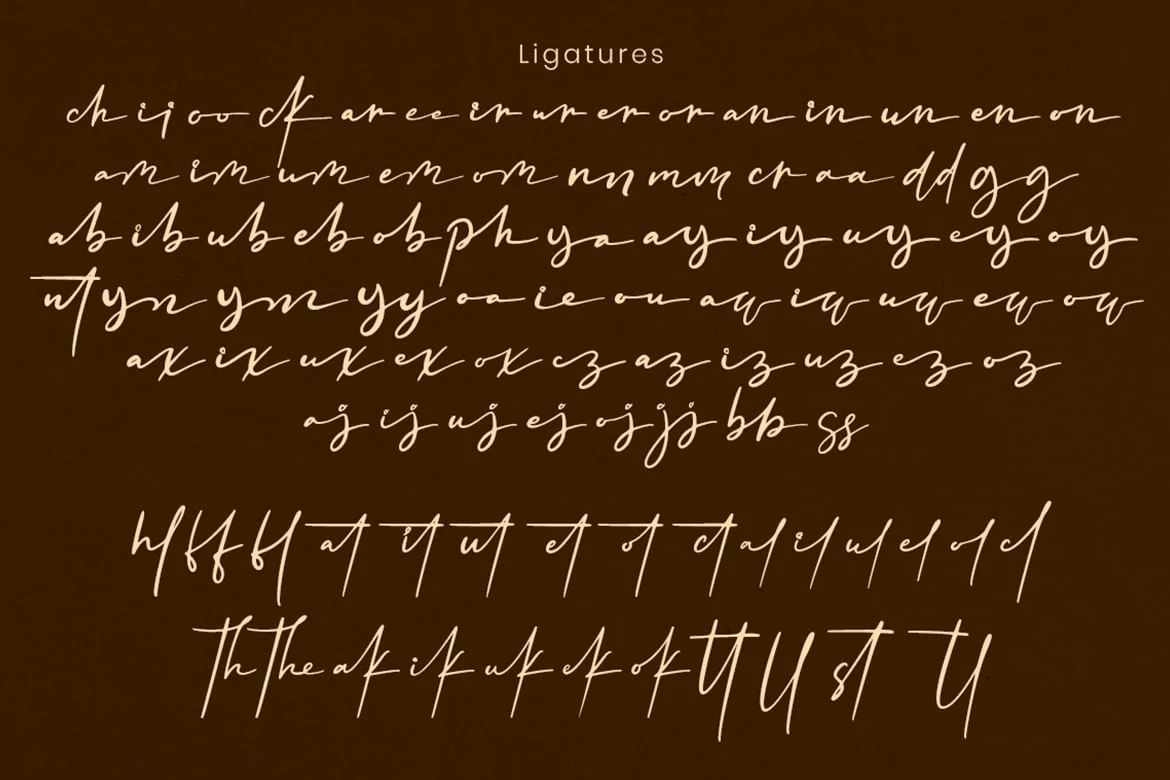 Ligatures
ch ij oo ck ar ee ir ur er or an in un en on
am im um em om nn mm cr aa dd gg
ab ib ub eb ob ph ya ay iy uy ey oy
nt yn ym yy oa ie ou aw iw uw ew ow
ax ix ux ex ox cz az iz uz ez oz
aj ij uj ej oj jj bb ss
ff fl at it ut et ot ct al il ul el ol cl
Th The ak ik uk ek ok tt ll st